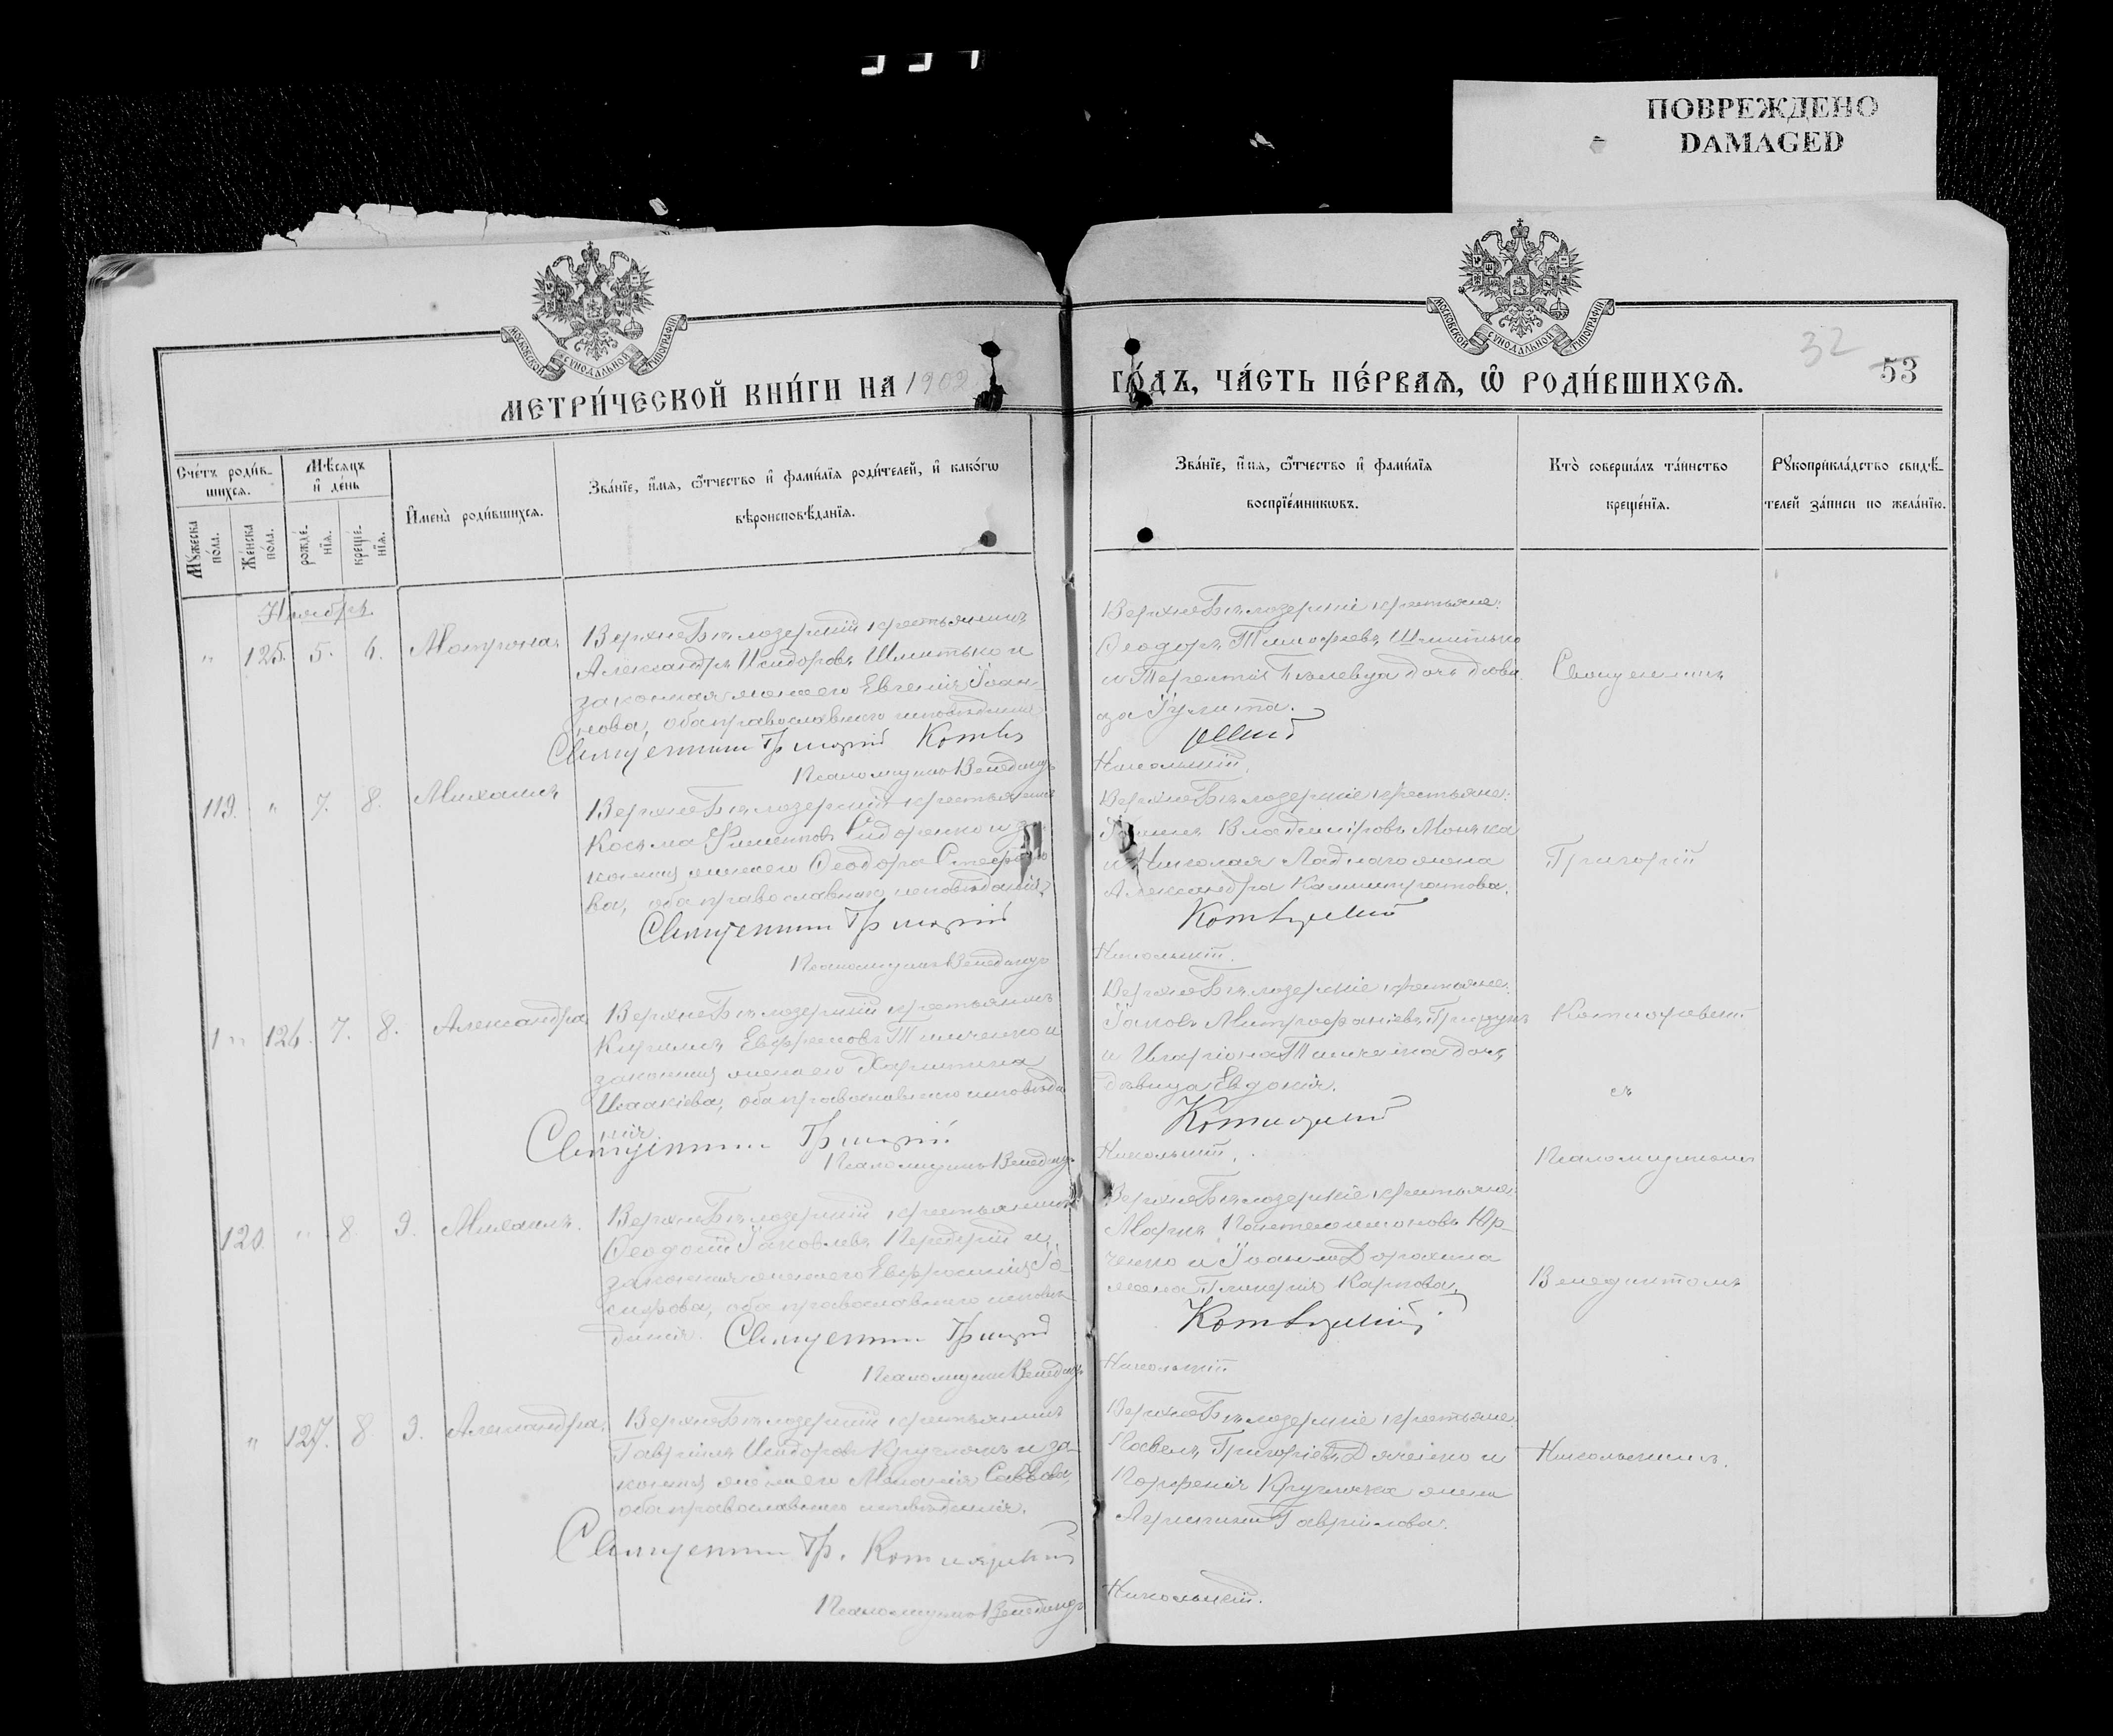 ПОВРЕЖДЕНО
DAMAGED
МОСКОВСКОЙ СѴНОДАЛЬНОЙ ТИПОГРАФІИ
МОСКОВСКОЙ СѴНОДАЛЬНОЙ ТИПОГРАФІИ
32
53
МЕТРИ́ЧЕСКОЙ КНИ́ГИ НА 1902
ГО́ДЪ, ЧА́СТЬ ПЕ́РВАѦ, Ѿ РОДИ́ВШИХСѦ.
Сче́тъ роди́в-
шихсѧ.
Мꙋ́жеска по́ла.
Же́нска по́ла.
Мѣ́сѧцъ
и҆ де́нь
рожде́-
нїѧ.
креще́-
нїѧ.
И҆мена̀ роди́вшихсѧ.
Зва́нїе, и҆́мѧ, ѻ҆́тчество и҆ фами́лїѧ роди́телей, и҆ како́гѡ
вѣроисповѣ́данїѧ.
Зва́нїе, и҆́мѧ, ѻ҆́тчество и҆ фами́лїѧ
воспрїе́мникѡвъ.
Кто̀ соверша́лъ та́инство
креще́нїѧ.
Рꙋкоприкла́дство свидѣ́-
телей за́писи по жела́нїю.
Ноябрь
" 125. 5. 6. Матрона
Верхне Бѣлозерскій крестьянинъ
Александръ Исидоровъ Шмитько и
законная жена его Евгенія Іоан-
нова, оба православнаго исповѣданія
Священникъ Григорій
Псаломщикъ Венедиктъ
Верхне Бѣлозерскіе крестьяне:
Ѳеодоръ Тимофѣевъ Шмитько
и Терентія дочь дѣви
ца Іулита.
Никольскій.
119. " 7. 8. Михаилъ
Верхне Бѣлозерскій крестьянинъ
Косьма Сидоренко и за
конная жена его Ѳеодора Стефано
ва, оба православнаго исповѣданія.
Священникъ Григорій
Псаломщикъ Венедиктъ
Верхне Бѣлозерскіе крестьяне:
Владиміровъ
и Николая Ладнаго жена
Александра Каллистратова.
Никольскій.
" 126. 7. 8. Александра
Верхне Бѣлозерскій крестьянинъ
Кириллъ Евфремовъ Тимченко и
законная жена его Харитина
Исаакіева, оба православнаго исповѣда
нія.
Священникъ Григорій
Псаломщикъ Венедиктъ
Верхне Бѣлозерскіе крестьяне:
Іаковъ Митрофаніевъ
и Иларіона Тимченка дочь
дѣвица Евдокія.
Никольскій.
120. " 8. 9. Михаилъ.
Верхне Бѣлозерскій крестьянинъ
Ѳеодосій Іаковлевъ Передерій и
законная жена его Евфросинія Іо-
сифова, оба православнаго исповѣ-
данія. Священникъ Григорій
Псаломщикъ Венедиктъ
Верхне Бѣлозерскіе крестьяне:
Маркъ Пантелеимоновъ Юр-
ченко и Іоанна Дорохина
жена Гликерія Карпова.
Никольскій.
" 127. 8. 9. Александра.
Верхне Бѣлозерскій крестьянинъ
Гавріилъ Исидоровъ Круглякъ и за-
конная жена его Меланія Саввова,
оба православнаго исповѣданія.
Священникъ Гр. Котляревскій
Псаломщикъ Венедиктъ
Верхне Бѣлозерскіе крестьяне:
Павелъ Григоріевъ Дяченко и
Порфирія Кругляка жена
Агрипина Гавріилова.
Никольскій.
Священникъ
Григорій
съ
Псаломщикомъ
Венедиктомъ
Никольскимъ.